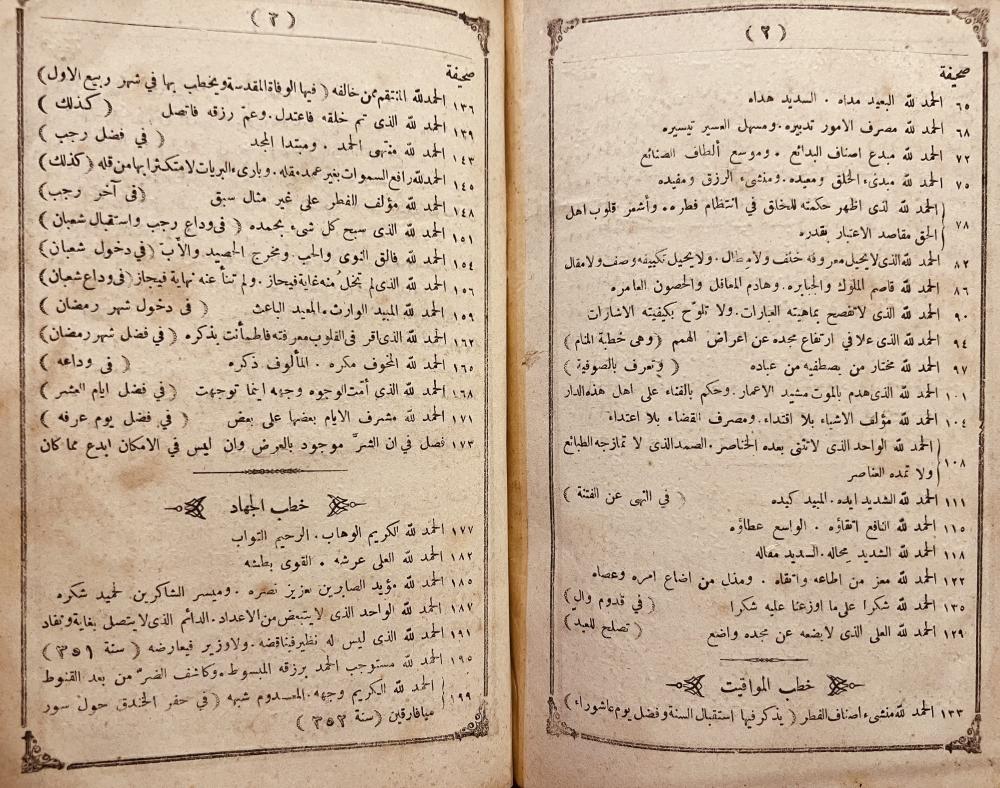 (٢)
صحيفة
٦٥ الحمد لله البعيد مداه . السديد هداه
٦٨ الحمد لله مصرف الامور تدبيره. ومسهل العسير تيسيره
٧٢ الحمد لله مبدع اصناف البدائع . وموسع ألطاف الصنائع
٧٥ الحمد لله مبدىء الخلق ومعيده. ومنشىء الرزق ومفيده
٧٨ الحمد لله لذى اظهر حكمته للخلق في انتظام فطره. وأشعر قلوب اهل
الحق مقاصد الاعتبار بقدره
٨٢ الحمد لله الذى لا يحيل معروفه خلف ولا مطال. ولا يحيل تكييفه وصف ولا مقال
٨٦ الحمد لله قاصم الملوك والجبابره. وهادم المعاقل والحصون العامره
٩٠ الحمد لله الذى لا تفصح بماهيته العبارات. ولا تلوّح بكيفيته الاشارات
٩٤ الحمد لله الذى علا في ارتفاع مجده عن اعراض الهمم (وهى خطبة المنام)
٩٧ الحمد لله مختار من يصطفيه من عباده (وتعرف بالصوفية)
١٠١ الحمد لله الذى هدم بالموت مشيد الاعمار. وحكم بالفناء على اهل هذه الدار
١٠٤ الحمد لله مؤلف الاشياء بلا اقتداء. ومصرف القضاء بلا اعتداء
١٠٨ الحمد لله الواحد الذى لا تثنى بعده الخناصر. الصمد الذى لا تمازجه الطبائع
ولا تمده العناصر
١١١ الحمد لله الشديد ايده. المبيد كيده (في النهى عن الفتنة)
١١٥ الحمد لله النافع اتقاؤه . الواسع عطاؤه
١١٨ الحمد لله الشديد محاله. السديد مقاله
١٢٢ الحمد لله معز من اطاعه واتقاه . ومذل من اضاع امره وعصاه
١٣٥ الحمد لله شكرا على ما اوزعنا عليه شكرا (في قدوم وال)
١٢٩ الحمد لله العلى الذى لا يضعه عن مجده واضع (تصلح للعيد)
خطب المواقيت
١٣٣ الحمد لله منشىء اصناف الفطر (يذكر فيها استقبال السنة وفضل يوم عاشوراء)
(٣)
صحيفة
١٣٦ الحمد لله المنتقم ممن خالفه (فيها الوفاة المقدسة ويخطب بها في شهر ربيع الاول)
١٣٩ الحمد لله الذى تم خلقه فاعتدل. وعمّ رزقه فاتصل (كذلك)
١٤٣ الحمد لله منتهى الحمد . ومبتدا المجد (في فضل رجب)
١٤٥ الحمد لله رافع السموات بغير عمد مقله. وبارىء البريات لا متكثرا بها من قله (كذلك)
١٤٨ الحمد لله مؤلف الفطر على غير مثال سبق (فى آخر رجب)
١٥١ الحمد لله الذى سبح كل شىء بحمده (فى وداع رجب واستقبال شعبان)
١٥٤ الحمد لله فالق النوى والحب. ومخرج الحصيد والأبّ (في دخول شعبان)
١٥٦ الحمد لله الذى لم تخلُ منه غاية فيحاز. ولم تنأ عنه نهاية فيجاز (فى وداع شعبان)
١٥٩ الحمد لله المبيد الوارث. المعيد الباعث (فى دخول شهر رمضان)
١٦٢ الحمد لله الذى اقر فى القلوب معرفته فاطمأنت بذكره (في فضل شهر رمضان)
١٦٥ الحمد لله المخوف مكره . المألوف ذكره (فى وداعه)
١٦٨ الحمد لله الذى أمّت الوجوه وجهه اينما توجهت (في فضل ايام العشر)
١٧١ الحمد لله مشرف الايام بعضها على بعض (في فضل يوم عرفه)
١٧٣ فصل في ان الشرّ موجود بالعرض وان ليس في الامكان ابدع مما كان
خطب الجهاد
١٧٧ الحمد لله الكريم الوهاب. الرحيم التواب
١٨٢ الحمد لله العلى عرشه . القوى بطشه
١٨٥ الحمد لله مؤيد الصابرين بعزيز نصره . وميسر الشاكرين لحميد شكره
١٨٧ الحمد لله الواحد الذى لا يتبعض من الاعداد. الدائم الذى لا يتصلى بغاية ونفاد
١٩١ الحمد لله الذى ليس له نظير فيناقضه. ولا وزير فيعارضه (سنة ٣٥١)
١٩٥ الحمد لله مستوجب الحمد برزقه المبسوط. وكاشف الضرّ من بعد القنوط
١٩٩ الحمد لله الكريم وجهه. المعدوم شبهه (في حفر الخندق حول سور
ميافارقين (سنة ٣٥٢)